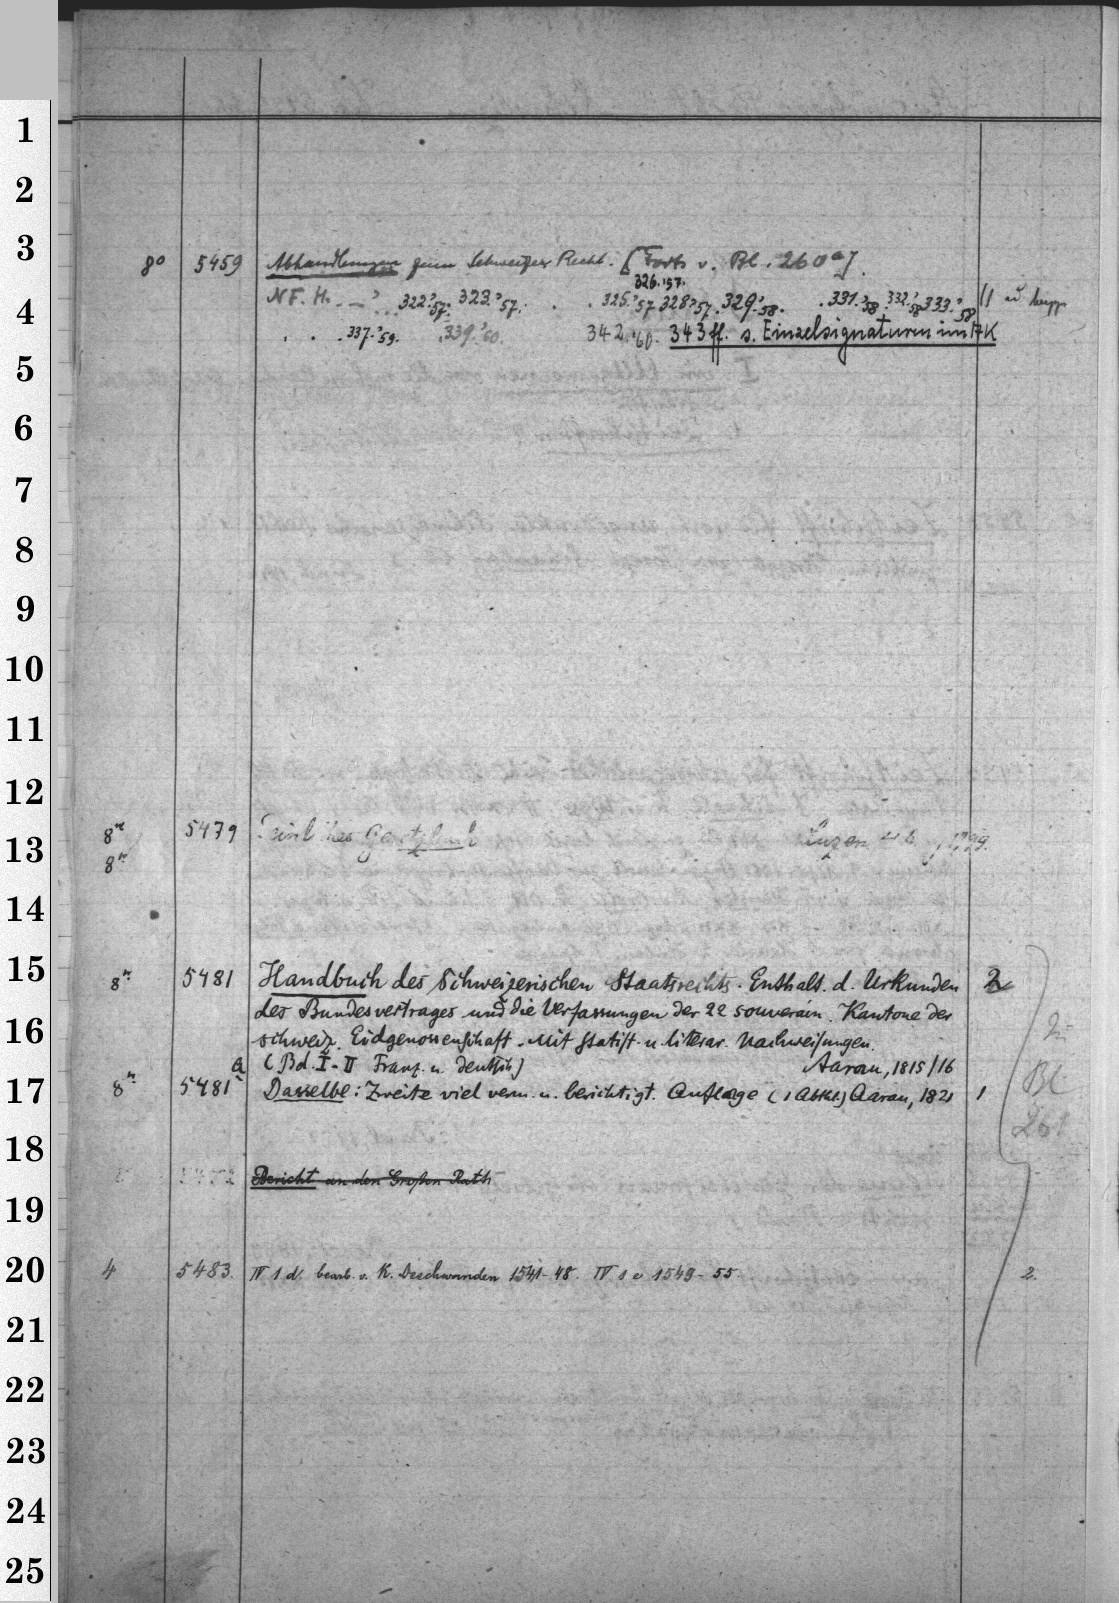 1
2
3
8° 5459 Abhandlungen zum Schweizer Recht. [Forts v. Bl. 260a].
326.'57.
4
NF. H. 322.'57. 323.'57. 325.'57 328.'57. 329.'58. 331.'58 332.'58 333.'58
337.'59. 339.'60. 342.'60. 343ff. s. Einzelsignaturen im FK
5
6
7
8
9
10
11
12
8° 5479 Peinliches Gesetzbuch Luzern 1799.
13
8°
14
15
8° 5481 Handbuch des Schweizerischen Staatsrechts. Enthalt. d. Urkunden 2
des Bundesvertrages und die Verfassungen der 22 souverain. Kantone der
16
schweiz. Eidgenossenschaft. Mit statist. u. literar. Nachweisungen.
(Bd. I-II Franz. u. deutsch) Aarau, 1815/16
17
8° 5481a Dasselbe: Zweite viel verm. u. berichtigt. Auflage (1 Abthl.) Aarau, 1821 1
Bl
261
18
Bericht an den Großen Rath
19
20
4 5483. IV 1 d. bearb. v. K. Deschwanden 1541-48. IV 1 e 1549-55 2.
21
22
23
24
25